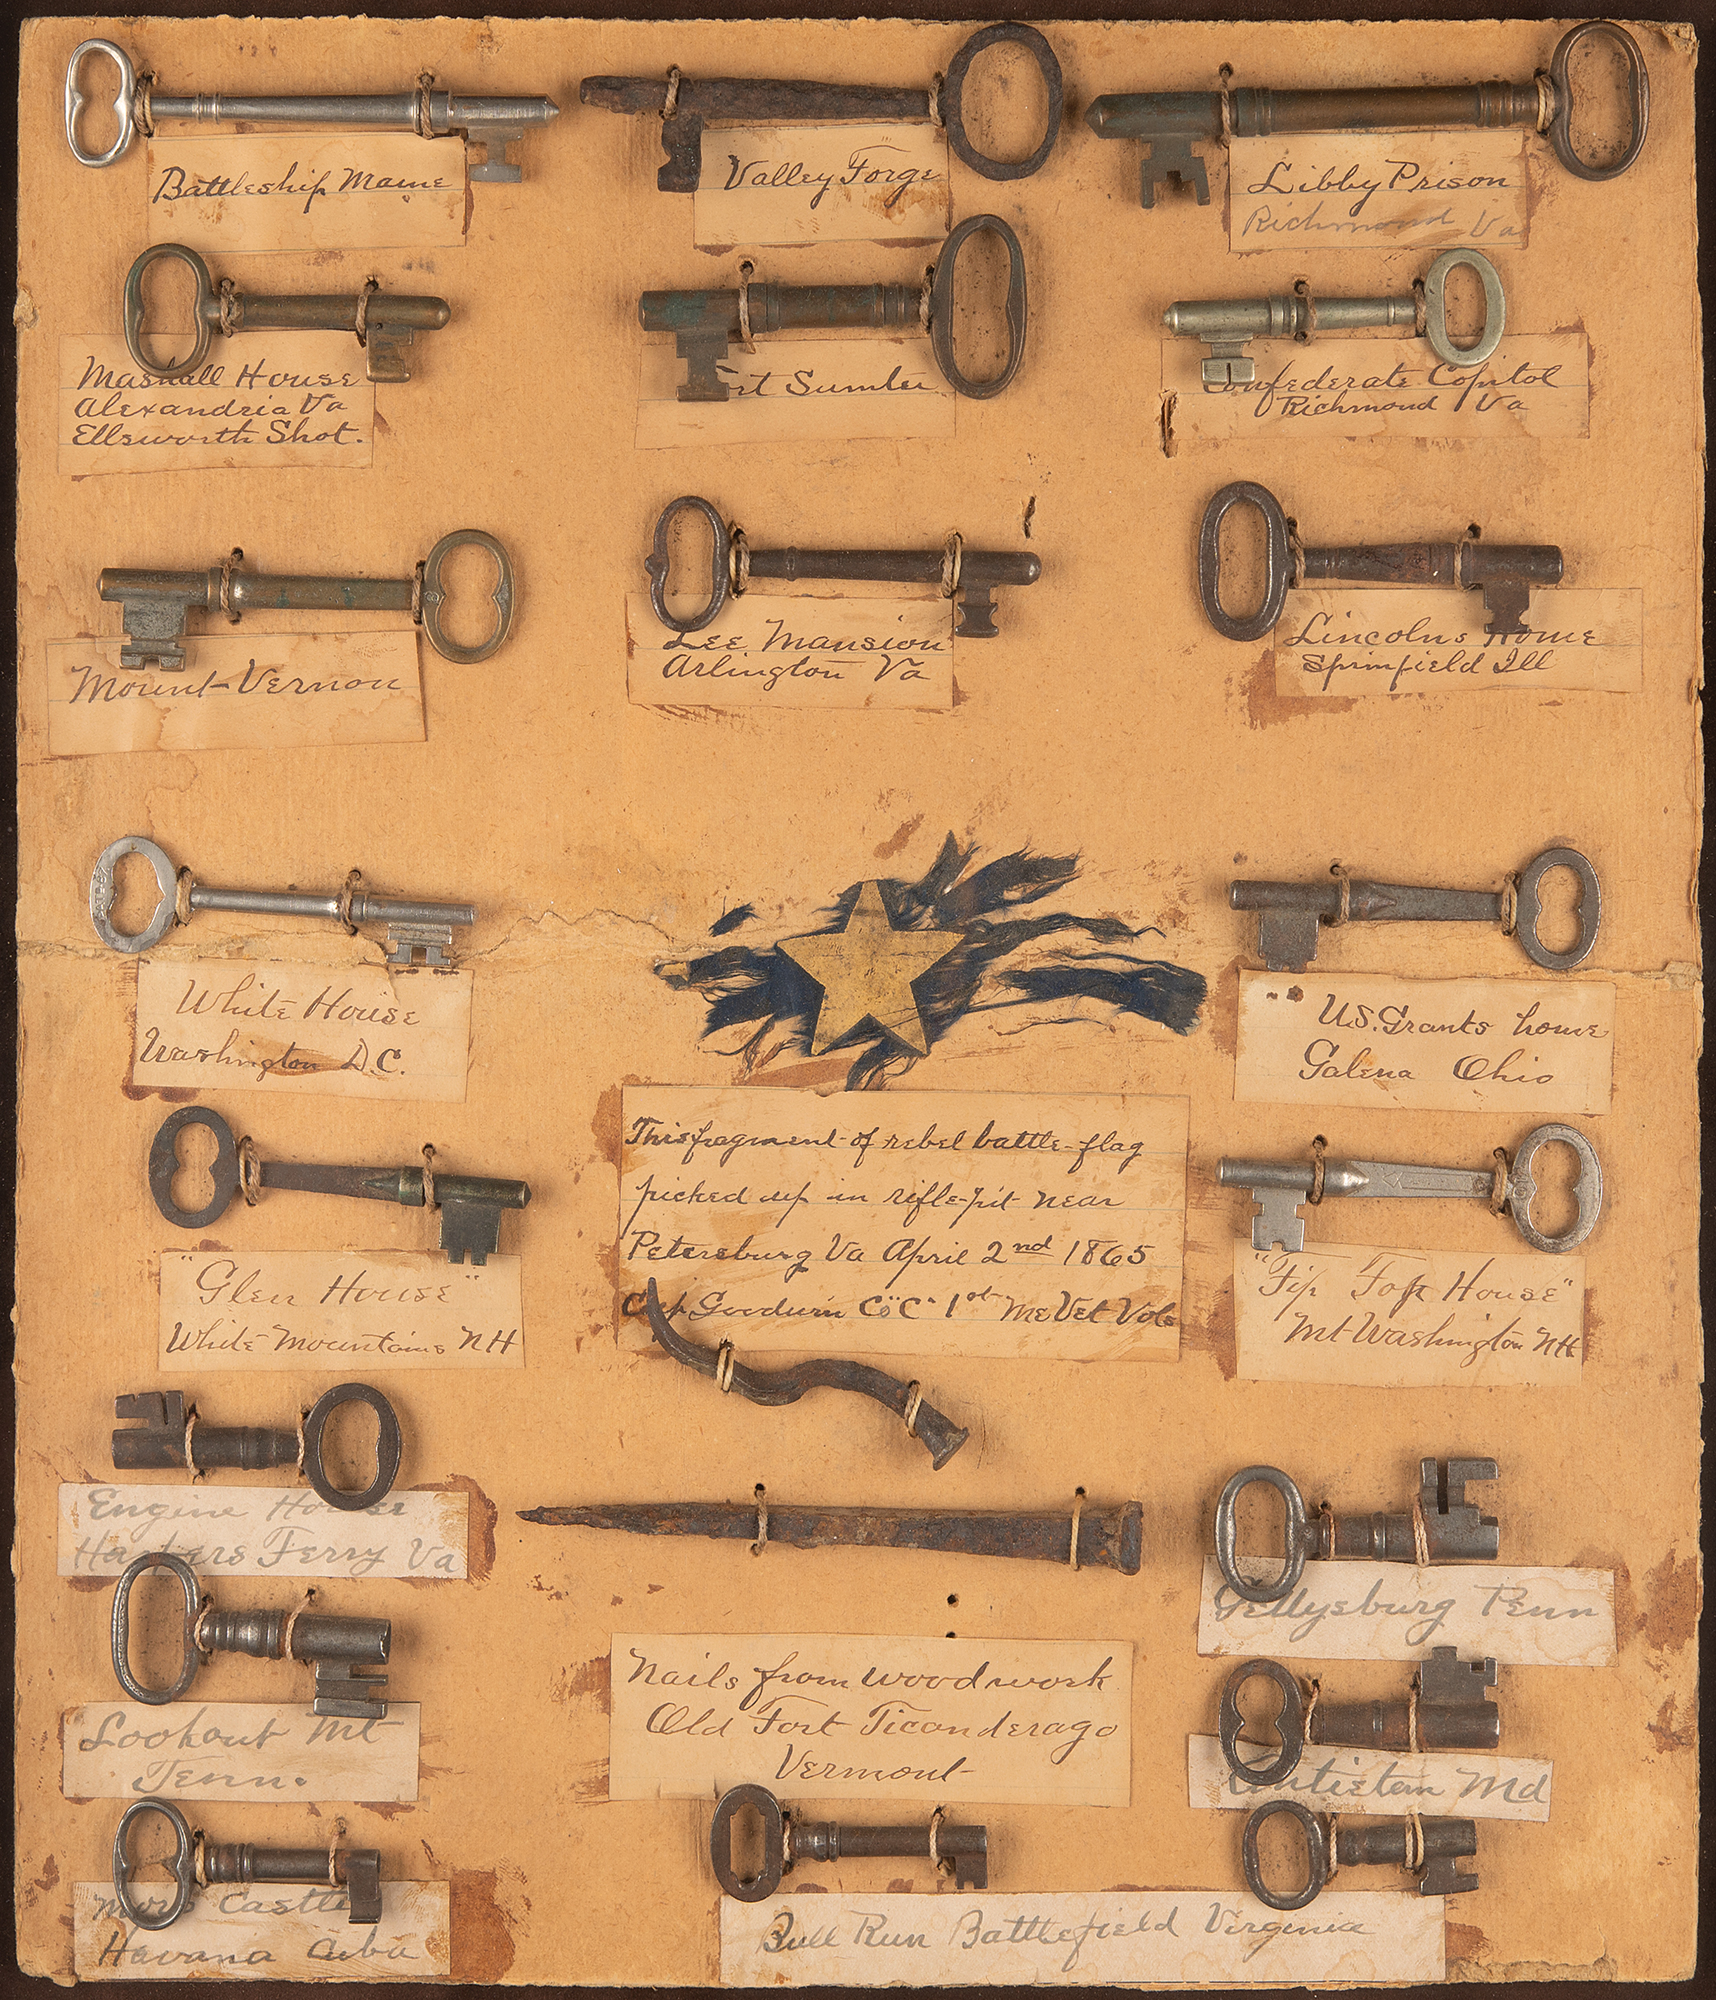 Battleship Maine
Valley Forge
Libby Prison
Richmond Va
Marshall House
Alexandria Va
Ellsworth Shot.
Fort Sumter
Confederate Capitol
Richmond Va
Mount-Vernon
Lee Mansion
Arlington Va
Lincolns Home
Sprinfield Ill
White House
Washington D.C.
U.S. Grants home
Galena Ohio
This fragment of rebel battle-flag
picked up in rifle-pit near
Petersburg Va April 2nd 1865
Goodwin Co "C" 1st Me Vet Vols
"Glen House"
White Mountains NH
"Tip Top House"
Mt Washington NH
Engine House
Harpers Ferry Va
Gettysburg Penn
Lookout Mt
Tenn.
Nails from woodwork
Old Fort Ticonderago
Vermont
Antietam Md
Moro Castle
Havana Cuba
Bull Run Battlefield Virginia